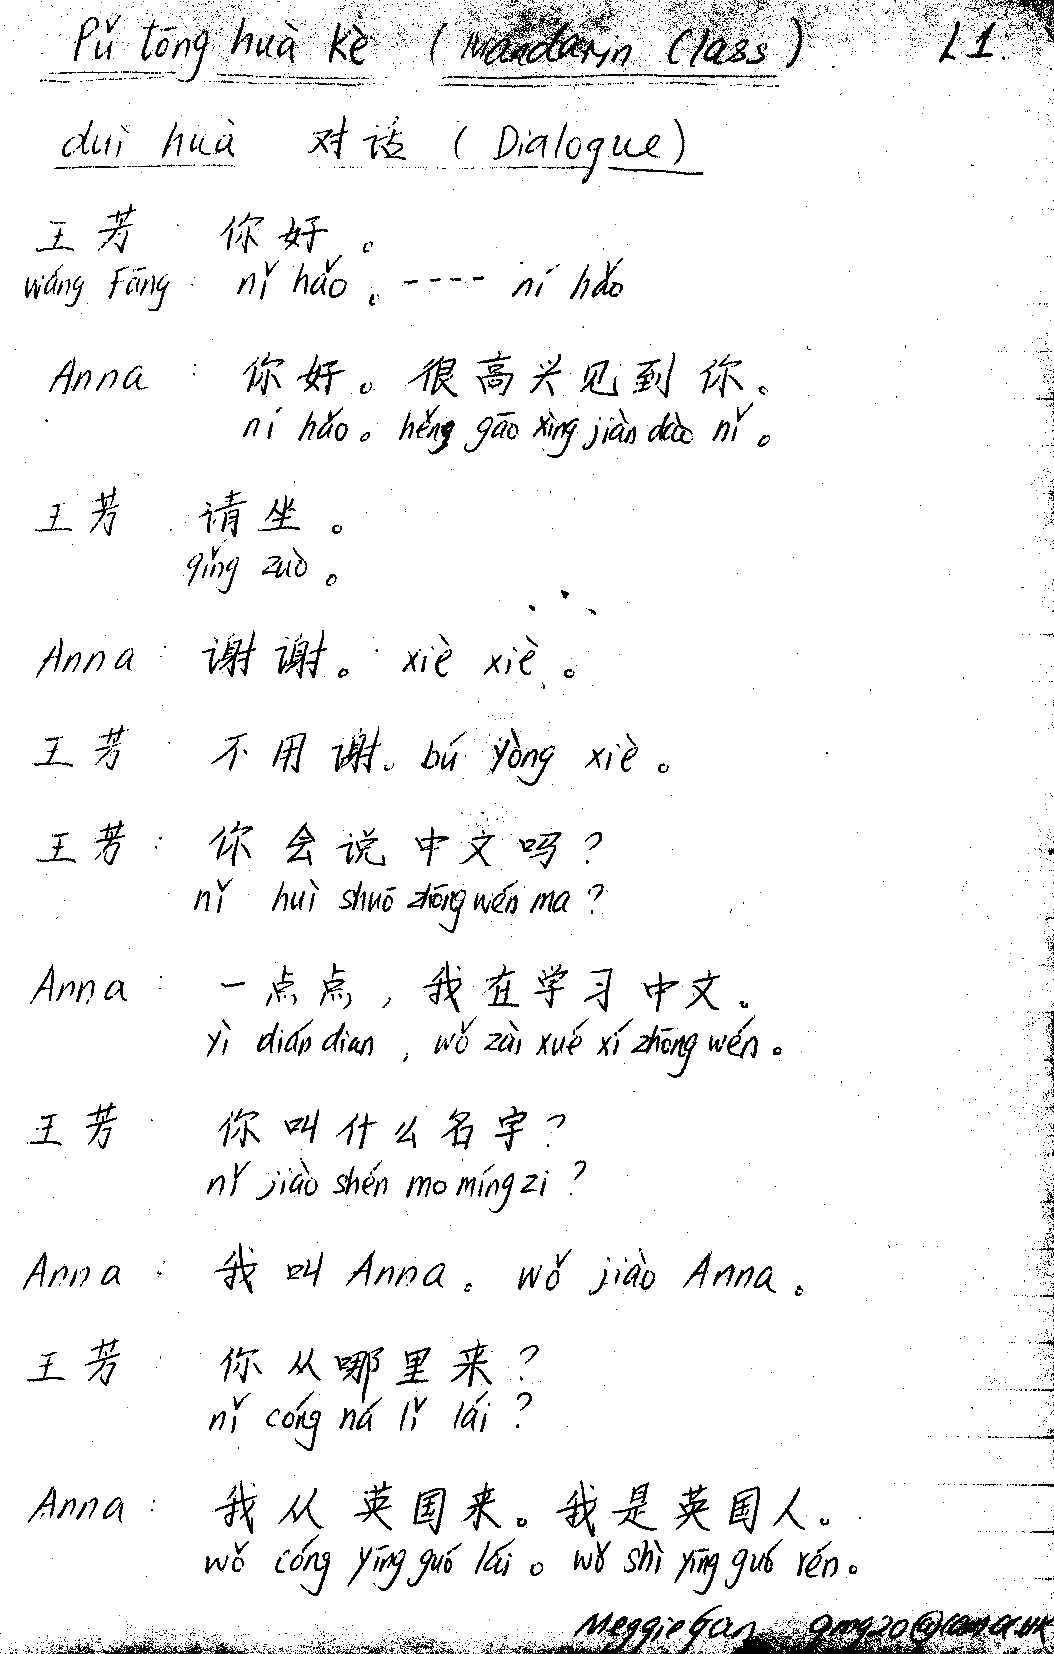 Pǔ tōng huà kè (Mandarin Class) L1.
duì huà 对话 (Dialogue)
王芳 : 你好。
wáng Fāng : nǐ hǎo。---- ní hǎo
Anna : 你好。很高兴见到你。
ní hǎo。hěng gāo xìng jiàn dào nǐ。
王芳 请坐。
qǐng zuò。
Anna : 谢谢。xiè xiè。
王芳 : 不用谢。bú yòng xiè。
王芳 : 你会说中文吗?
nǐ huì shuō zhōng wén ma?
Anna : 一点点,我在学习中文。
yì dián dian, wǒ zài xué xí zhōng wén。
王芳 : 你叫什么名字?
nǐ jiào shén mo míng zi?
Anna : 我叫 Anna。wǒ jiào Anna。
王芳 : 你从哪里来?
nǐ cóng ná lǐ lái?
Anna : 我从英国来。我是英国人。
wǒ cóng yīng guó lái。wǒ shì yīng guó rén。
Meggie Gan